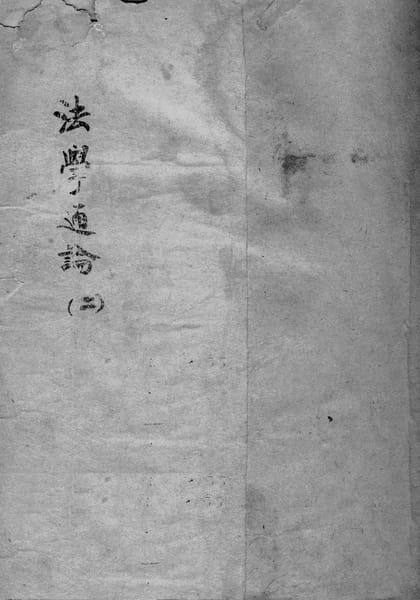 法學通論(二)